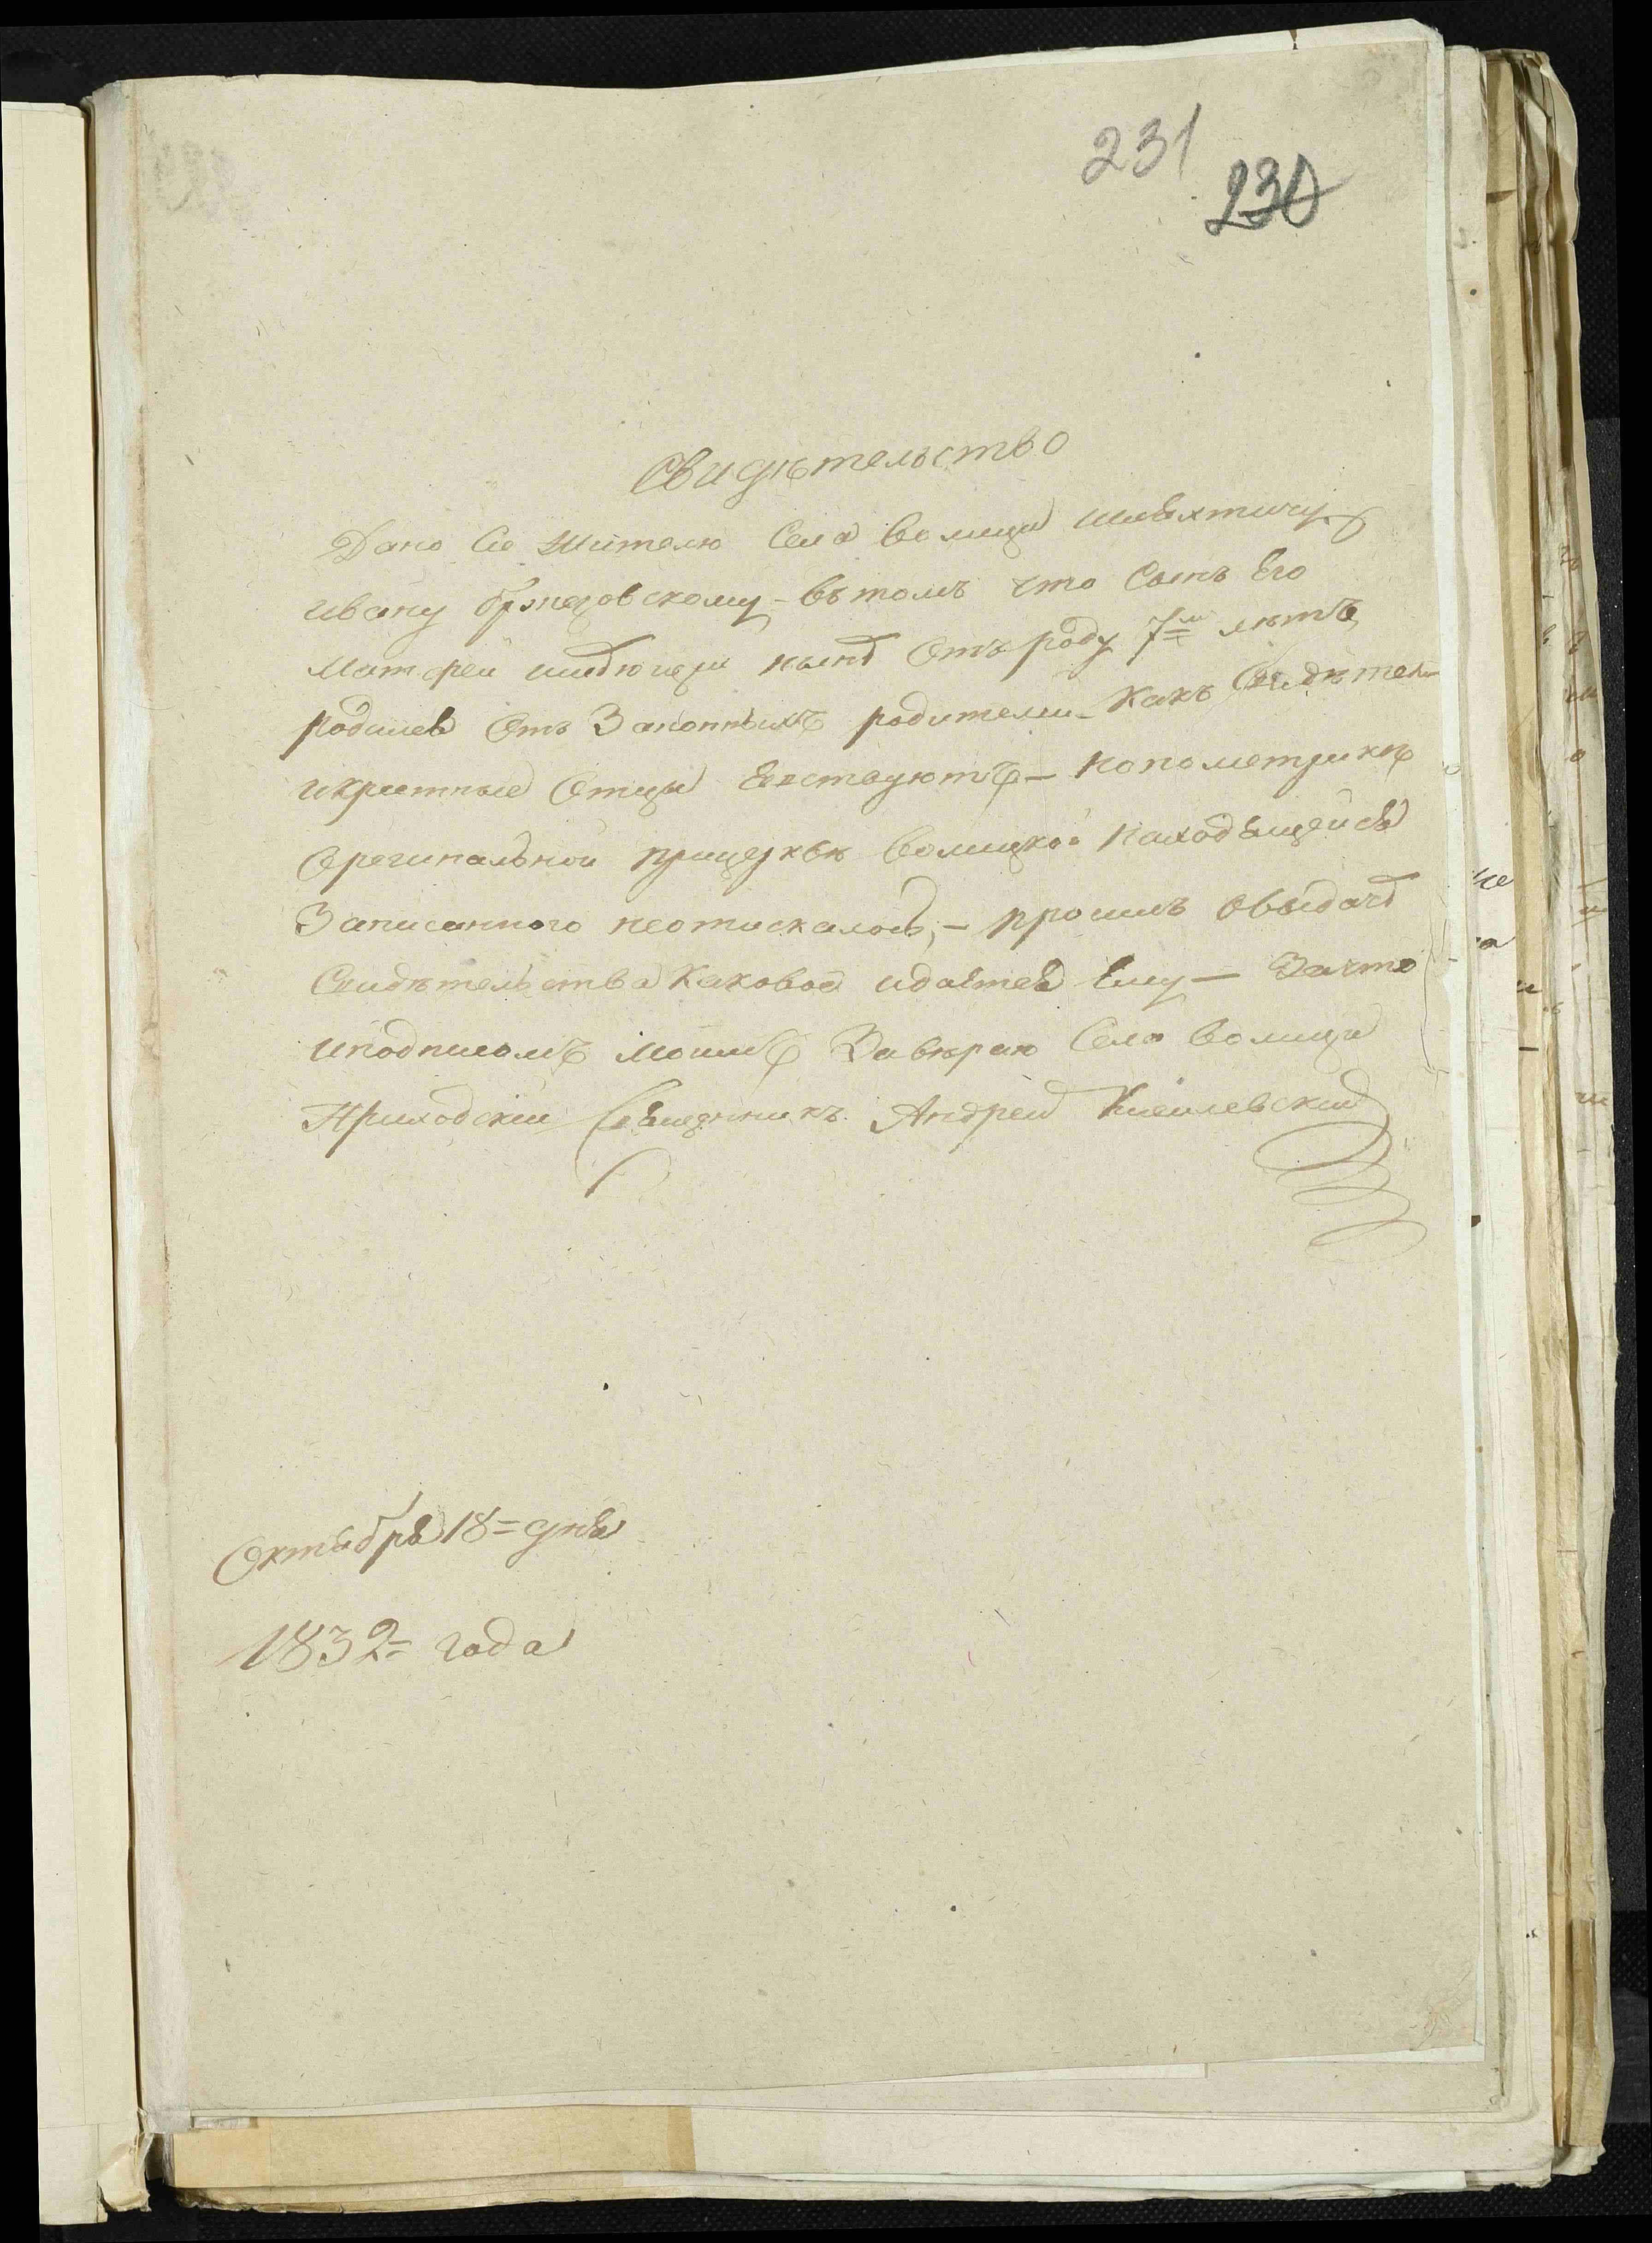 231
230
Свидѣтельство
Дано Сіе Жителю Села Волици шляхтичу
Ивану Бржезовскому – вътомъ что Сынъ Его
Матфей имѣющи нынѣ Отъ роду 7ми лѣтъ
родился Отъ Законныхъ родителей – Какъ Свидѣтели
икрестные Отцы – нопометрикѣ
Орегинальной прицерквѣ Волицкой находящейся
Записанного неотискалось, – просилъ Овыдачѣ
Свидѣтельства Каковое идаётся Ему – Зачто
иподписомъ моимъ Завѣраю Села Волици
Приходскій Священникъ Андрей
Октября 18= дня
1832= года